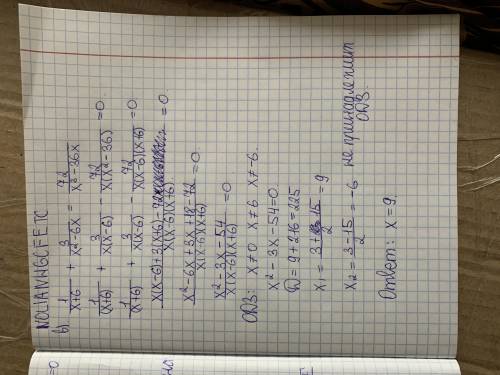 NOLIAIVNGCFETC
b) 1/(x+6) + 3/(x²-6x) = 72/(x³-36x)
1/(x+6) + 3/(x(x-6)) - 72/(x(x²-36)) = 0.
1/(x+6) + 3/(x(x-6)) - 72/(x(x-6)(x+6)) = 0.
(x(x-6)+3(x+6)-72)/(x(x-6)(x+6)) = 0
(x²-6x+3x+18-72)/(x(x-6)(x+6)) = 0.
(x²-3x-54)/(x(x-6)(x+6)) = 0
ОДЗ: x≠0 x≠6 x≠-6.
x²-3x-54=0.
D=9+216=225
x₁ = (3+15)/2 = 9
x₂ = (3-15)/2 = -6 не принадлежит
ОДЗ.
Ответ: x=9.
=0